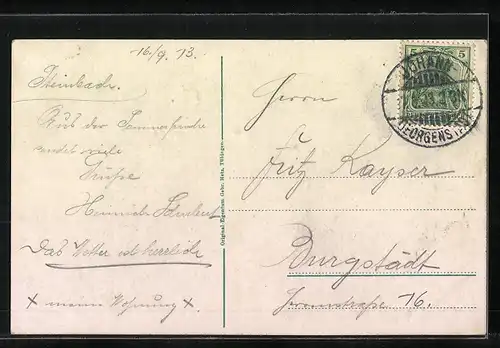 16/9 13.
Steinbach.
Aus der Sommerfrische
sendet viele
Grüße
Heinrich
Das Wetter ist herrlich
x meine Wohnung x
Original-Eigentum Gebr. Metz, Tübingen.
5 5
JOHANN
GEORGENSTADT
Herrn
Fritz Kayser
Burgstädt
16.